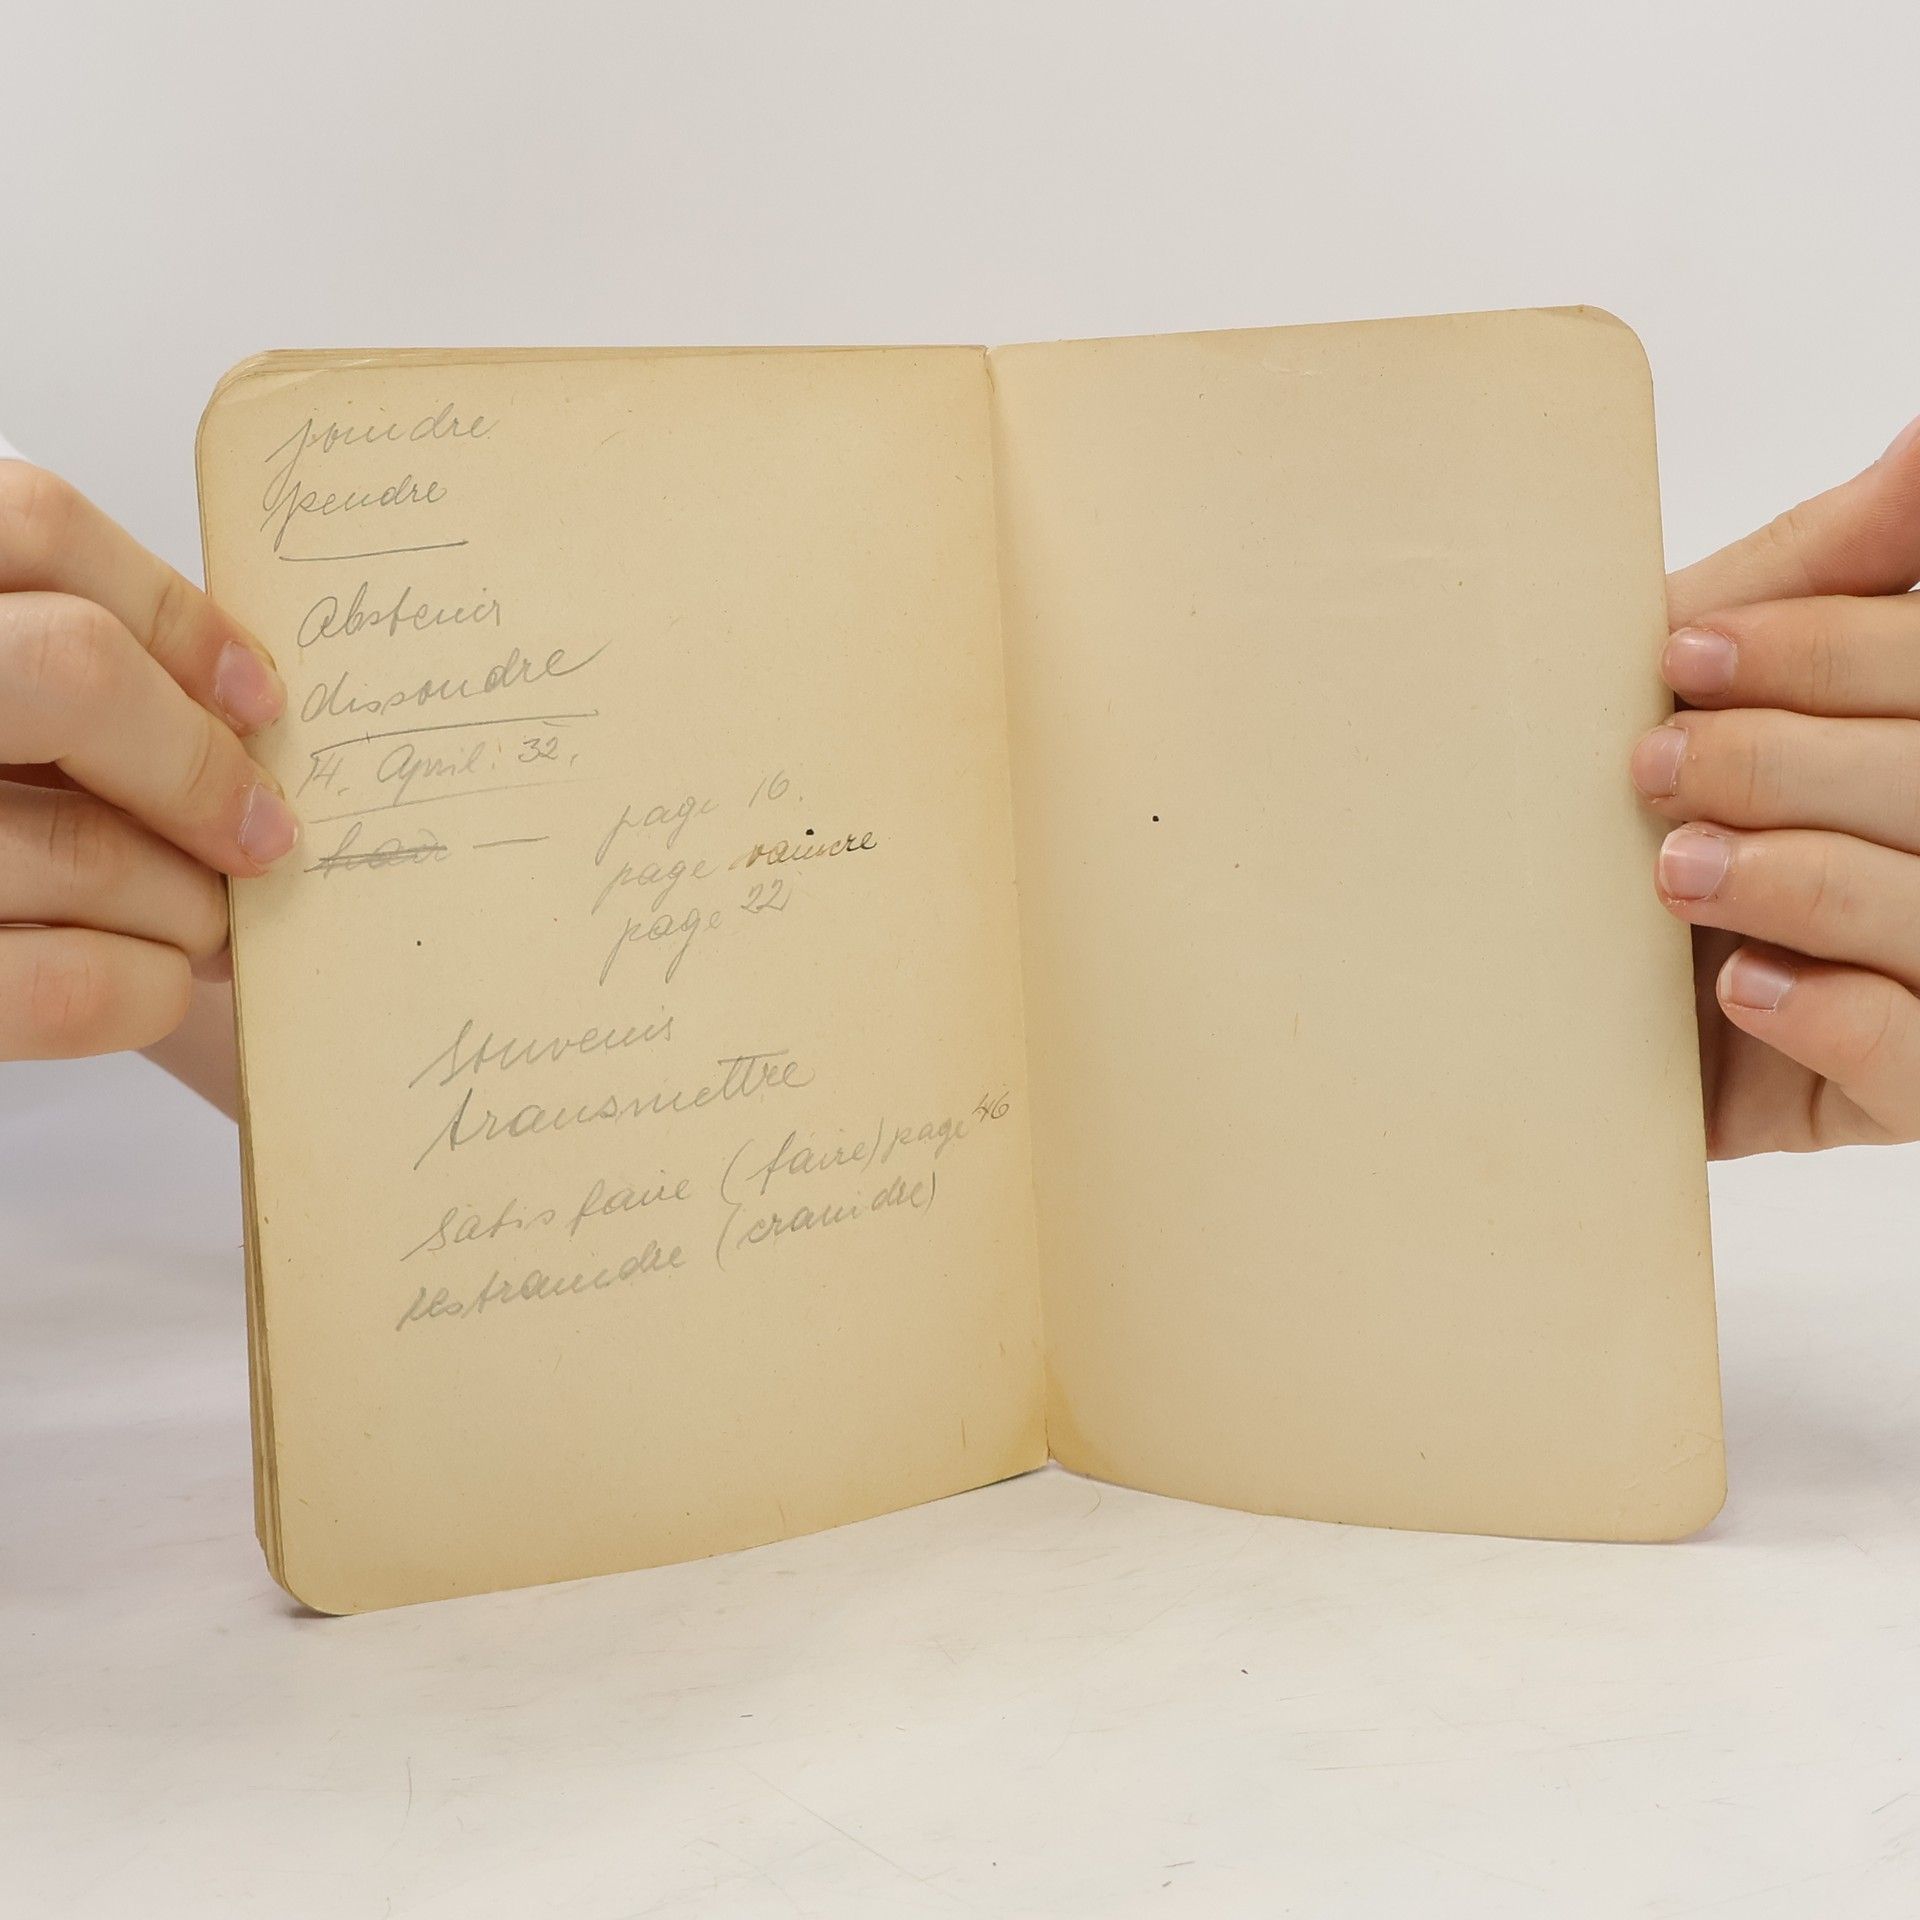 joindre
pendre
Abstenir
dissoudre
14. April. 32.
haïr — page 16.
page vaincre
page 22
Souvenir
transmettre
Satisfaire (faire) page 46
restraindre (craindre)